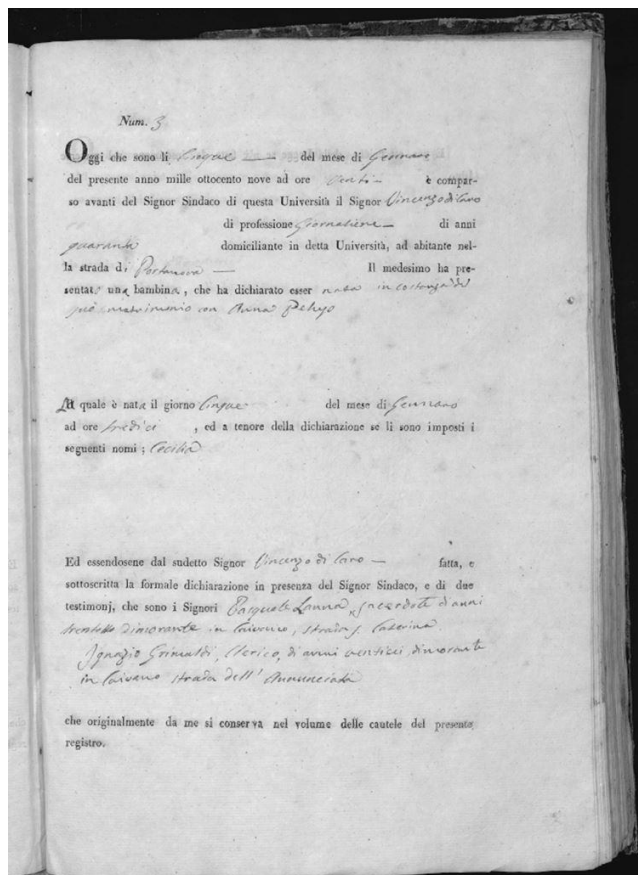 Num. 3
Oggi che sono li Cinque del mese di Gennaro
del presente anno mille ottocento nove ad ore venti è compar-
so avanti del Signor Sindaco di questa Università il Signor Vincenzo di Caro
di professione Giornaliere di anni
quaranta domiciliante in detta Università, ad abitante nel-
la strada di Portanova Il medesimo ha pre-
sentat. una bambina, che ha dichiarato esser nata in costanza di
matrimonio con Anna
La quale è nata il giorno Cinque del mese di Gennaro
ad ore tredici , ed a tenore della dichiarazione se li sono imposti i
seguenti nomi ; Cecilia
Ed essendosene dal sudetto Signor Vincenzo di Caro fatta, e
sottoscritta la formale dichiarazione in presenza del Signor Sindaco, e di due
testimonj, che sono i Signori Pasquale Lanna, sacerdote di anni
dimorante in Caivano, strada S. Caterina.
Ignazio Grimaldi, Clerico, di anni dimorante
in Caivano strada dell' Annunciata
che originalmente da me si conserva nel volume delle cautele del presente
registro.